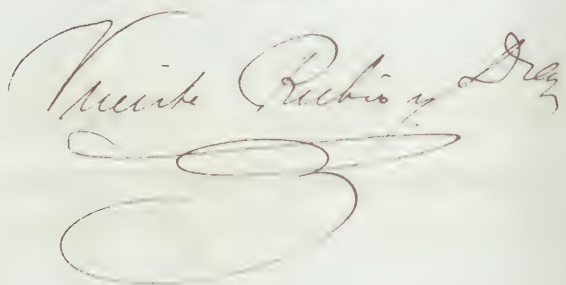 Vicente Rubio y Diaz